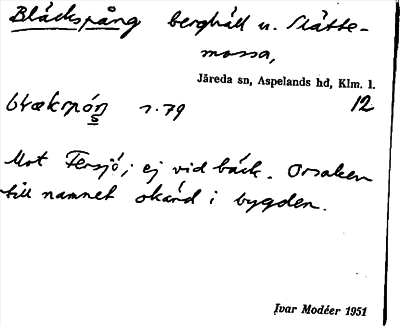 Bläckspång berghäll n. Slätte-
mossa,
Järeda sn, Aspelands hd, Klm. l.
12
s. 79
Mot Fersjö; ej vid bäck. Orsaken
till namnet okänd i bygden.
Ivar Modéer 1951